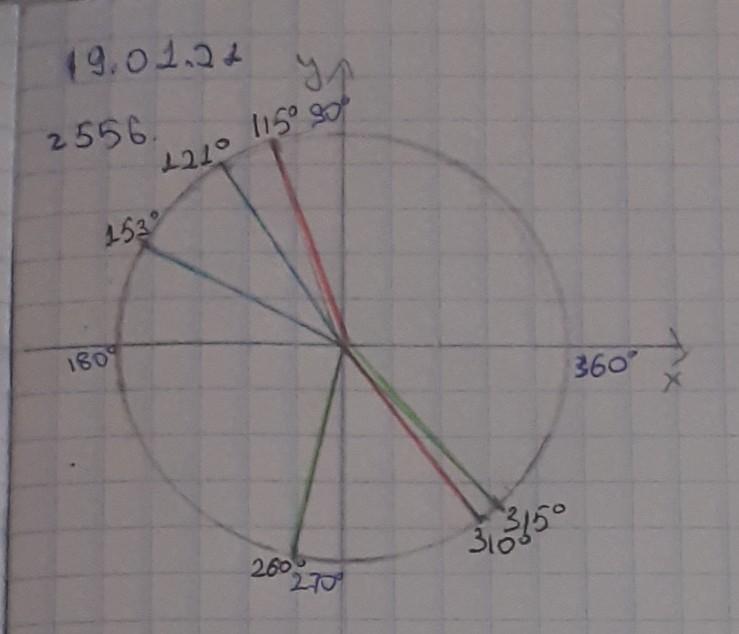 19.01.21
y
2556.
115° 90°
121°
153°
180°
360°
x
315°
310°
260°
270°